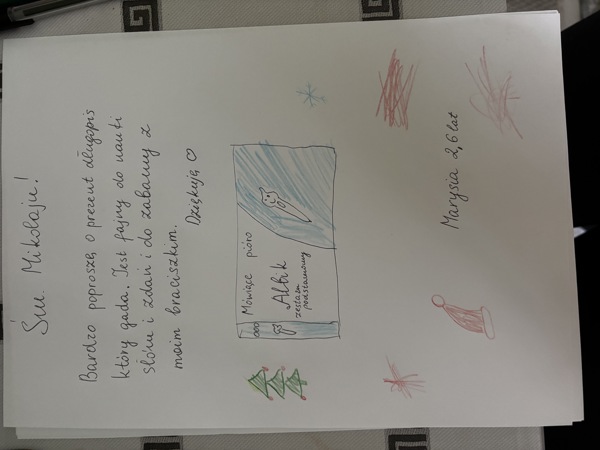 Św. Mikołaju!
Bardzo poproszę o prezent długopis
który gada. Jest fajny do nauki
słów i zdań i do zabawy z
moim braciszkiem.
Dziękuję ♡
Mówiące pióro
Albik
zestaw
podstawowy
Marysia 2,6 lat